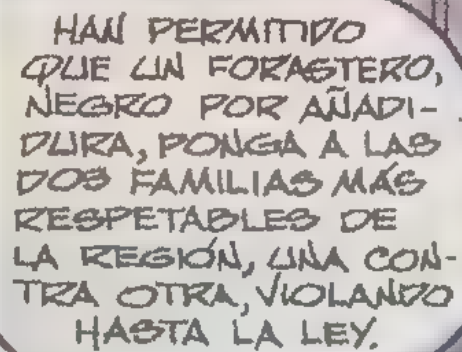 HAN PERMITIDO
QUE UN FORASTERO,
NEGRO POR AÑADI-
DURA, PONGA A LAS
DOS FAMILIAS MÁS
RESPETABLES DE
LA REGIÓN, UNA CON-
TRA OTRA, VIOLANDO
HASTA LA LEY.